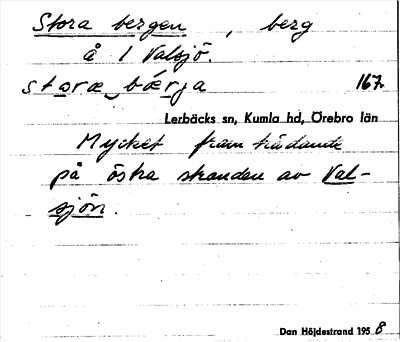 Stora bergen , berg
å 1 Valsjö.
storæ bærja 167.
Lerbäcks sn, Kumla hd, Örebro län
Mycket framträdande
på östra stranden av Val-
sjön.
Dan Höjdestrand 1958